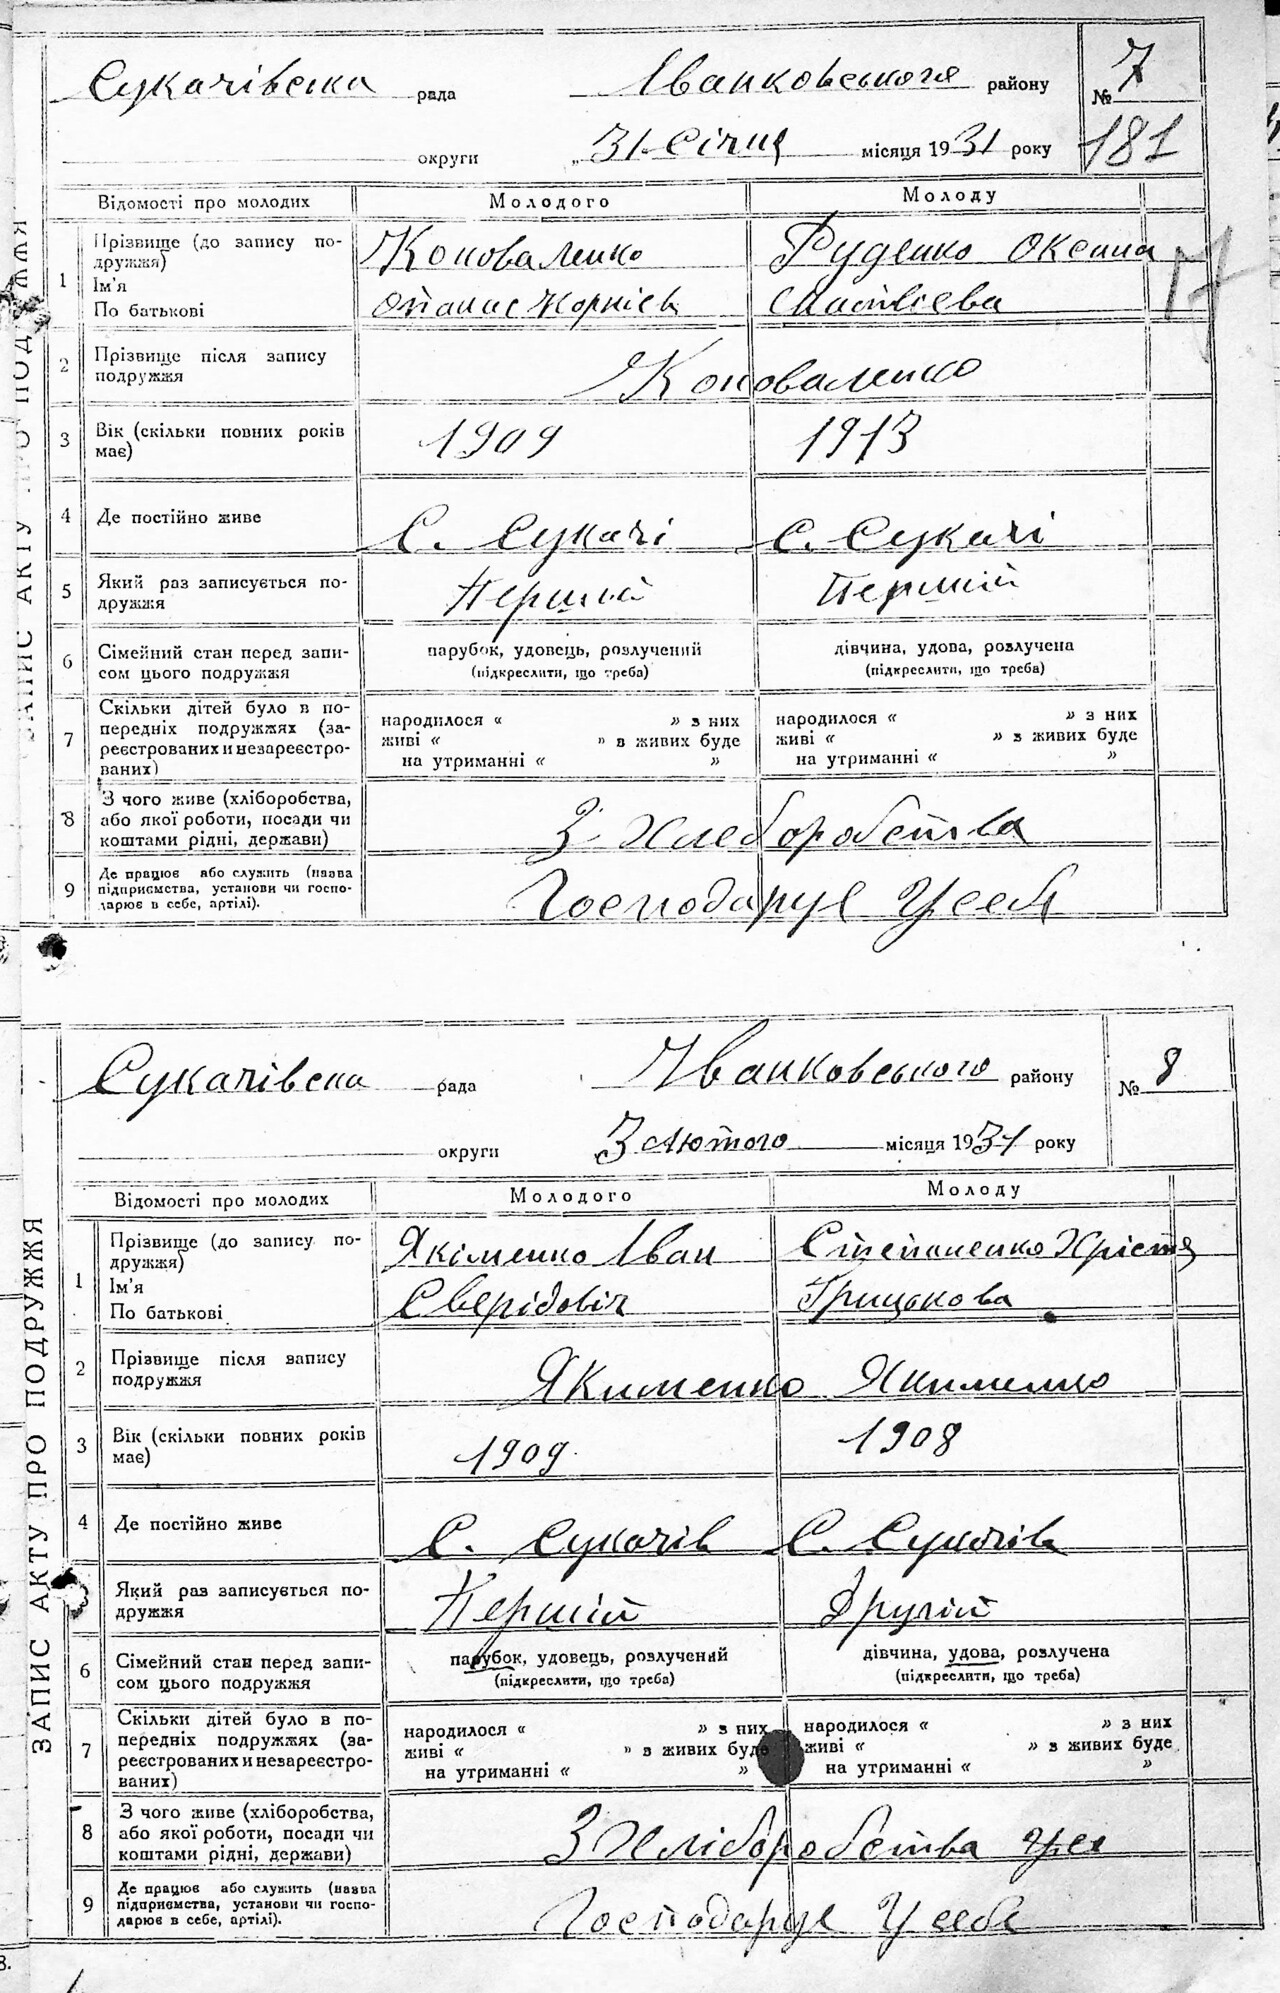 Сукачівска рада Іванковського району № 7
округи „31 Січня місяця 1931 року 181
Відомості про молодих Молодого Молоду
1 Прізвище (до запису по- Коноваленко Руденко Оксана
дружжя)
Ім'я
По батькові Опанас Корнієв Матвієва
17
2 Прізвище після запису Коноваленко
подружжя
3 Вік (скільки повних років 1909 1913
має)
4 Де постійно живе С. Сукачі С. Сукачі
5 Який раз записується по- Першій Першій
дружжя
6 Сімейний стан перед запи- парубок, удовець, розлучений дівчина, удова, розлучена
сом цього подружжя (підкреслити, що треба) (підкреслити, що треба)
7 Скільки дітей було в по- народилося “ ” з них народилося “ ” з них
передніх подружжях (за- живі “ ” в живих буде живі “ ” з живих буде
реєстрованих и незареєстро- на утриманні “ ” на утриманні “ ”
ваних)
8 З чого живе (хліборобства, З Хлеборобства
або якої роботи, посади чи
коштами рідні, держави)
9 Де працює або служить (назва Господарує У себя
підприємства, установи чи госпо-
дарює в себе, артілі).
ЗАПИС АКТУ ПРО ПОДРУЖЖЯ
Сукачівска рада Іванковського району № 8
округи 3 Лютого місяця 1931 року
Відомості про молодих Молодого Молоду
1 Прізвище (до запису по- Якіменко Іван Степаненко Хрістя
дружжя)
Ім'я
По батькові Сверідовіч Грицькова
2 Прізвище після запису Якименко Якименко
подружжя
3 Вік (скільки повних років 1909 1908
має)
4 Де постійно живе С. Сукачів С. Сукачів
5 Який раз записується по- Першій Другій
дружжя
6 Сімейний стан перед запи- парубок, удовець, розлучений дівчина, удова, розлучена
сом цього подружжя (підкреслити, що треба) (підкреслити, що треба)
7 Скільки дітей було в по- народилося “ ” з них народилося “ ” з них
передніх подружжях (за- живі “ ” з живих буде живі “ ” з живих буде
реєстрованих и незареєстро- на утриманні “ ” на утриманні “ ”
ваних)
8 З чого живе (хліборобства, З Хліборобства
або якої роботи, посади чи
коштами рідні, держави)
9 Де працює або служить (назва Господарує У себе
підприємства, установи чи госпо-
дарює в себе, артілі).
ЗАПИС АКТУ ПРО ПОДРУЖЖЯ